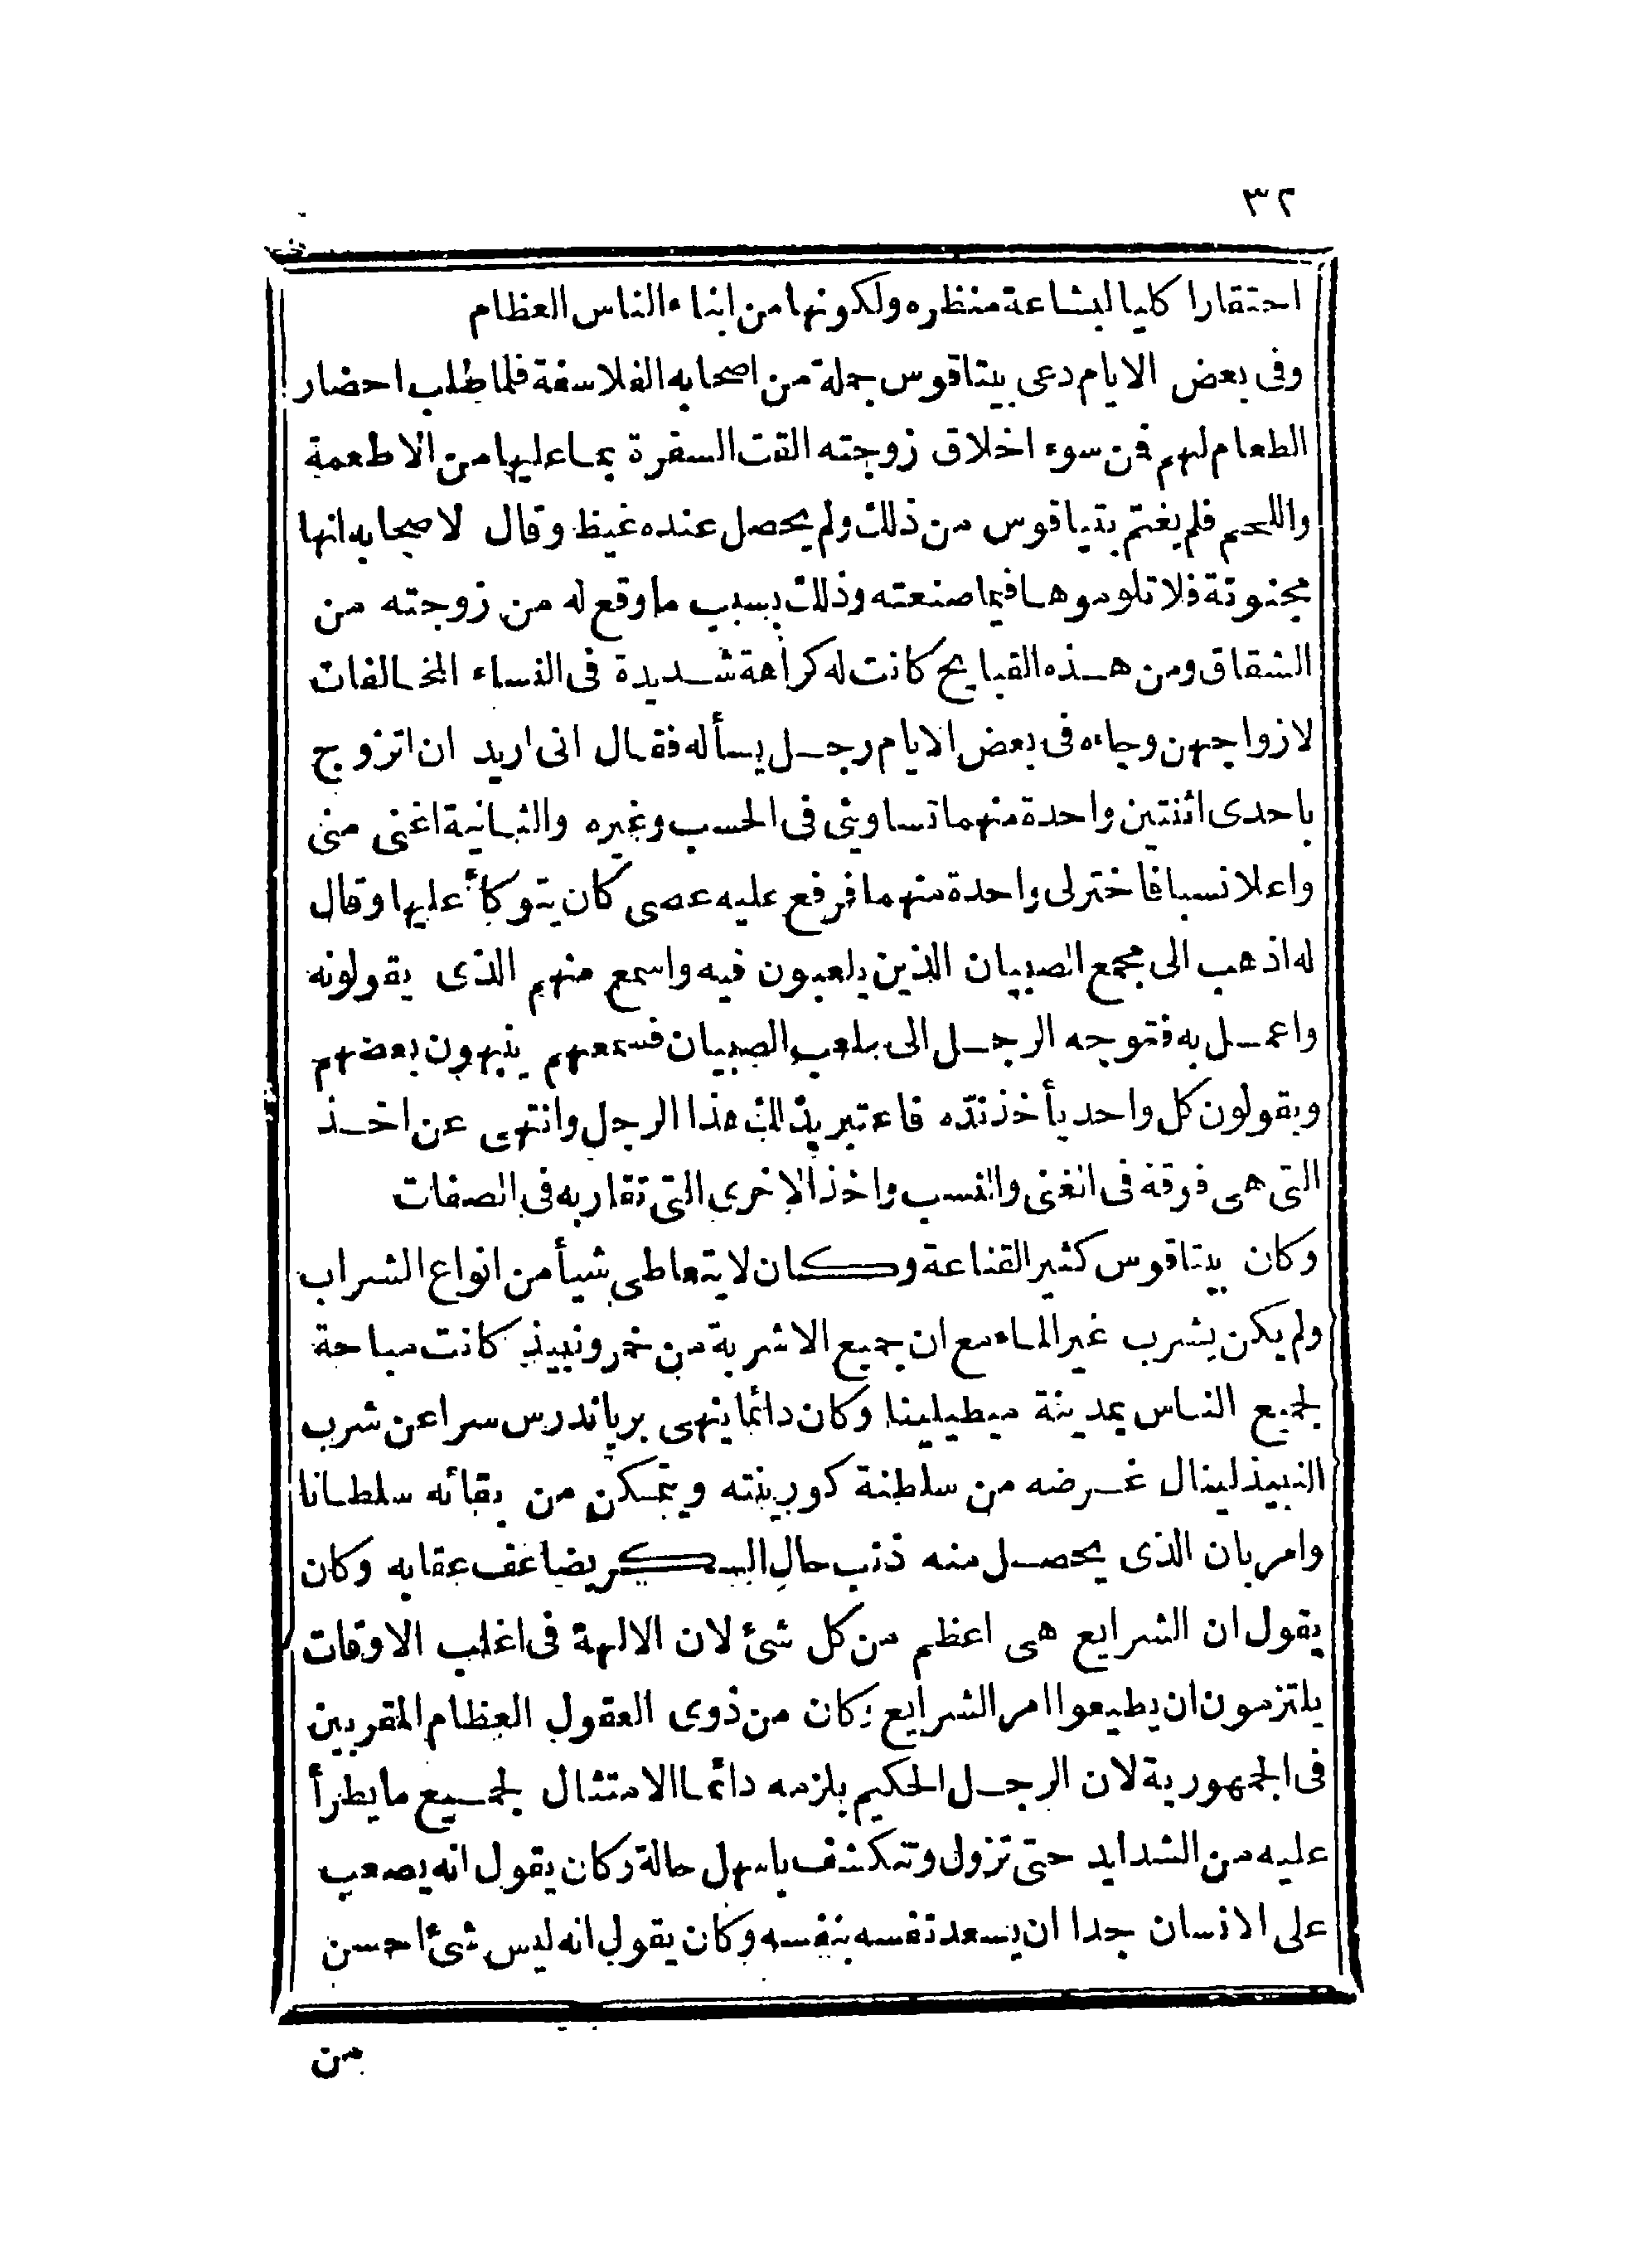 ٣٢
احتقارا كليا لبشاعة منظره ولكونها من ابناء الناس العظام
وفى بعض الايام دعى بيتاقوس جملة من اصحابه الفلاسفة فلما طلب احضار
الطعام لهم فن سوء اخلاق زوجته القت السفرة بما عليها من الاطعمة
واللحم فلم يغتم بتياقوس من ذلك ولم يحصل عنده غيظ وقال لاصحابه انها
مجنونة فلا تلوموها فيما صنعته وذلك بسبب ما وقع له من زوجته من
الشقاق ومن هذه القبايح كانت له كراهة شديدة فى النساء المخالفات
لازواجهن وجاءه فى بعض الايام رجل يسأله فقال انى اريد ان اتزوج
باحدى اثنتين واحدة منهما تساوينى فى الحسب وغيره والثانية اغنى منى
واعلا نسبا فاختر لى واحدة منهما فرفع عليه عصى كان يتوكأ عليها وقال
له اذهب الى مجمع الصبيان الذين يلعبون فيه واسمع منهم الذى يقولونه
واعمل به فتوجه الرجل الى ملعب الصبيان فسمعهم ينبهون بعضهم
ويقولون كل واحد يأخذ نده فاعتبر بذلك هذا الرجل وانتهى عن اخذ
التى هى فوقه فى الغنى والنسب واخذ الاخرى التى تقاربه فى الصفات
وكان بيتاقوس كثير القناعة وكان لا يتعاطى شيأ من انواع الشراب
ولم يكن يشرب غير الماء مع ان جميع الاشربة من خمر ونبيذ كانت مباحة
لجميع الناس بمدينة ميطيلينا وكان دائما ينهى برياندرس سرا عن شرب
النبيذ لينال غرضه من سلطنة كورينته ويتمكن من بقائه سلطانا
وامر بان الذى يحصل منه ذنب حال السكر يضاعف عقابه وكان
يقول ان الشرايع هى اعظم من كل شئ لان الالهة فى اغلب الاوقات
يلتزمون ان يطيعوا امر الشرايع وكان من ذوى العقول العظام المقربين
فى الجمهورية لان الرجل الحكيم يلزمه دائما الامتثال لجميع ما يطرأ
عليه من الشدايد حتى تزول وتنكشف باسهل حالة وكان يقول انه يصعب
على الانسان جدا ان يسعد نفسه بنفسه وكان يقول انه ليس شئ احسن
من